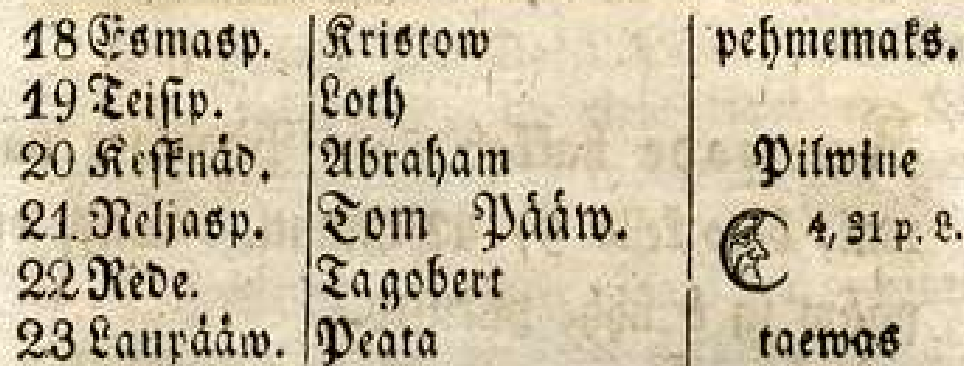 18 Esmasp. Kristow pehmemaks.
19 Teisip. Loth
20 Keſknäd. Abraham Pilwine
21. Neljasp. Tom Pääw. 4, 31 p. L.
22 Rede. Tagobert
23 Laupääw. Peata taewas